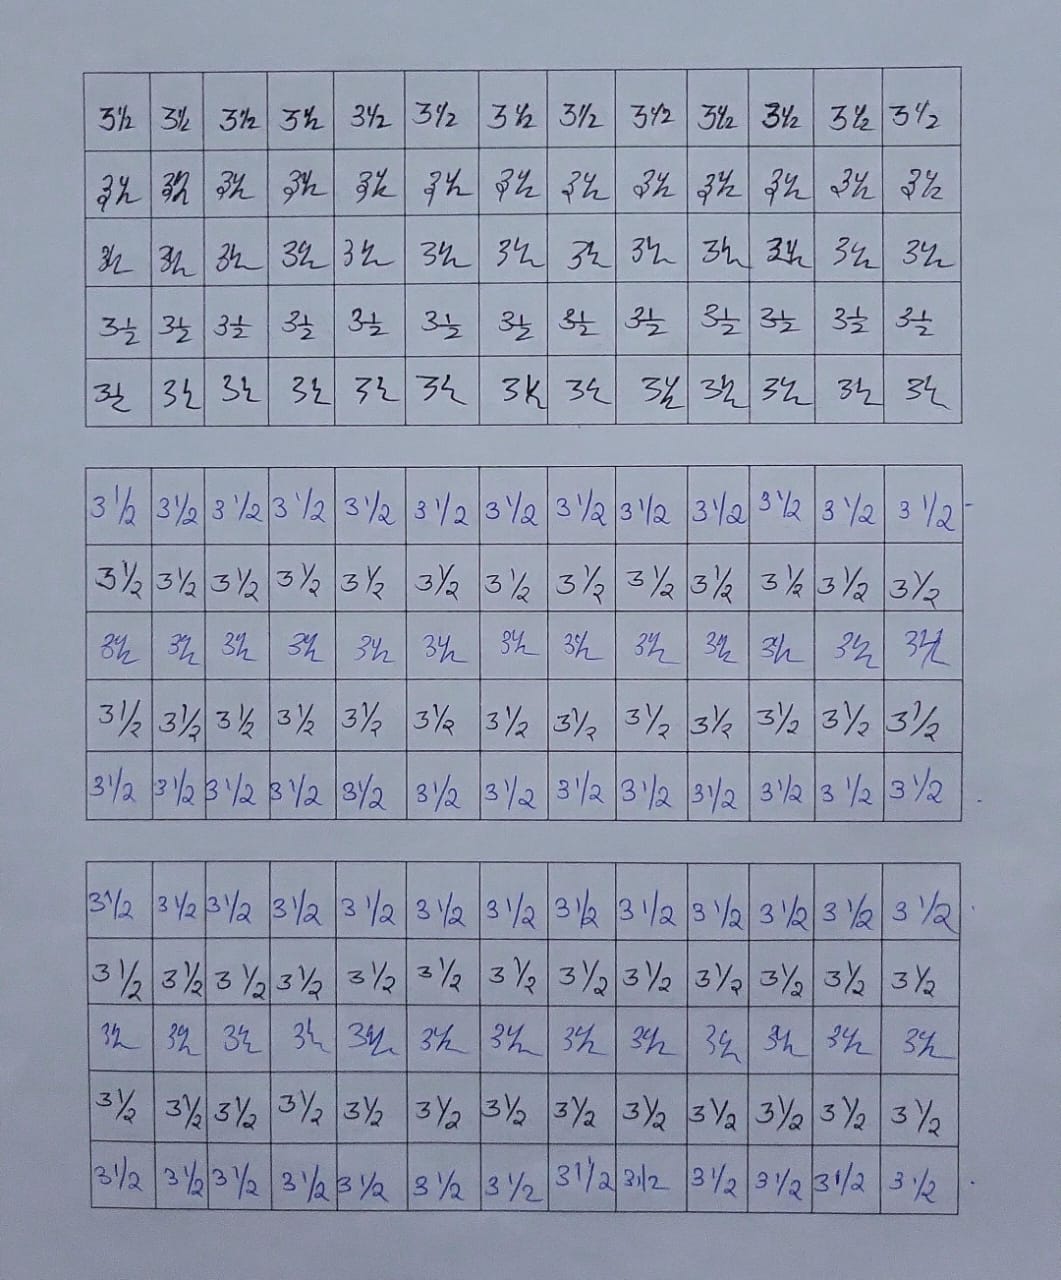 3½ 3½ 3½ 3½ 3½ 3½ 3½ 3½ 3½ 3½ 3½ 3½ 3½
3½ 3½ 3½ 3½ 3½ 3½ 3½ 3½ 3½ 3½ 3½ 3½ 3½
3½ 3½ 3½ 3½ 3½ 3½ 3½ 3½ 3½ 3½ 3½ 3½ 3½
3½ 3½ 3½ 3½ 3½ 3½ 3½ 3½ 3½ 3½ 3½ 3½ 3½
3½ 3½ 3½ 3½ 3½ 3½ 3½ 3½ 3½ 3½ 3½ 3½ 3½
3 1/2 3 1/2 3 1/2 3 1/2 3 1/2 3 1/2 3 1/2 3 1/2 3 1/2 3 1/2 3 1/2 3 1/2 3 1/2
3 1/2 3 1/2 3 1/2 3 1/2 3 1/2 3 1/2 3 1/2 3 1/2 3 1/2 3 1/2 3 1/2 3 1/2 3 1/2
3½ 3½ 3½ 3½ 3½ 3½ 3½ 3½ 3½ 3½ 3½ 3½ 3½
3 1/2 3 1/2 3 1/2 3 1/2 3 1/2 3 1/2 3 1/2 3 1/2 3 1/2 3 1/2 3 1/2 3 1/2 3 1/2
3 1/2 3 1/2 3 1/2 3 1/2 3 1/2 3 1/2 3 1/2 3 1/2 3 1/2 3 1/2 3 1/2 3 1/2 3 1/2
3 1/2 3 1/2 3 1/2 3 1/2 3 1/2 3 1/2 3 1/2 3 1/2 3 1/2 3 1/2 3 1/2 3 1/2 3 1/2
3 1/2 3 1/2 3 1/2 3 1/2 3 1/2 3 1/2 3 1/2 3 1/2 3 1/2 3 1/2 3 1/2 3 1/2 3 1/2
3½ 3½ 3½ 3½ 3½ 3½ 3½ 3½ 3½ 3½ 3½ 3½ 3½
3 1/2 3 1/2 3 1/2 3 1/2 3 1/2 3 1/2 3 1/2 3 1/2 3 1/2 3 1/2 3 1/2 3 1/2 3 1/2
3 1/2 3 1/2 3 1/2 3 1/2 3 1/2 3 1/2 3 1/2 3 1/2 3 1/2 3 1/2 3 1/2 3 1/2 3 1/2